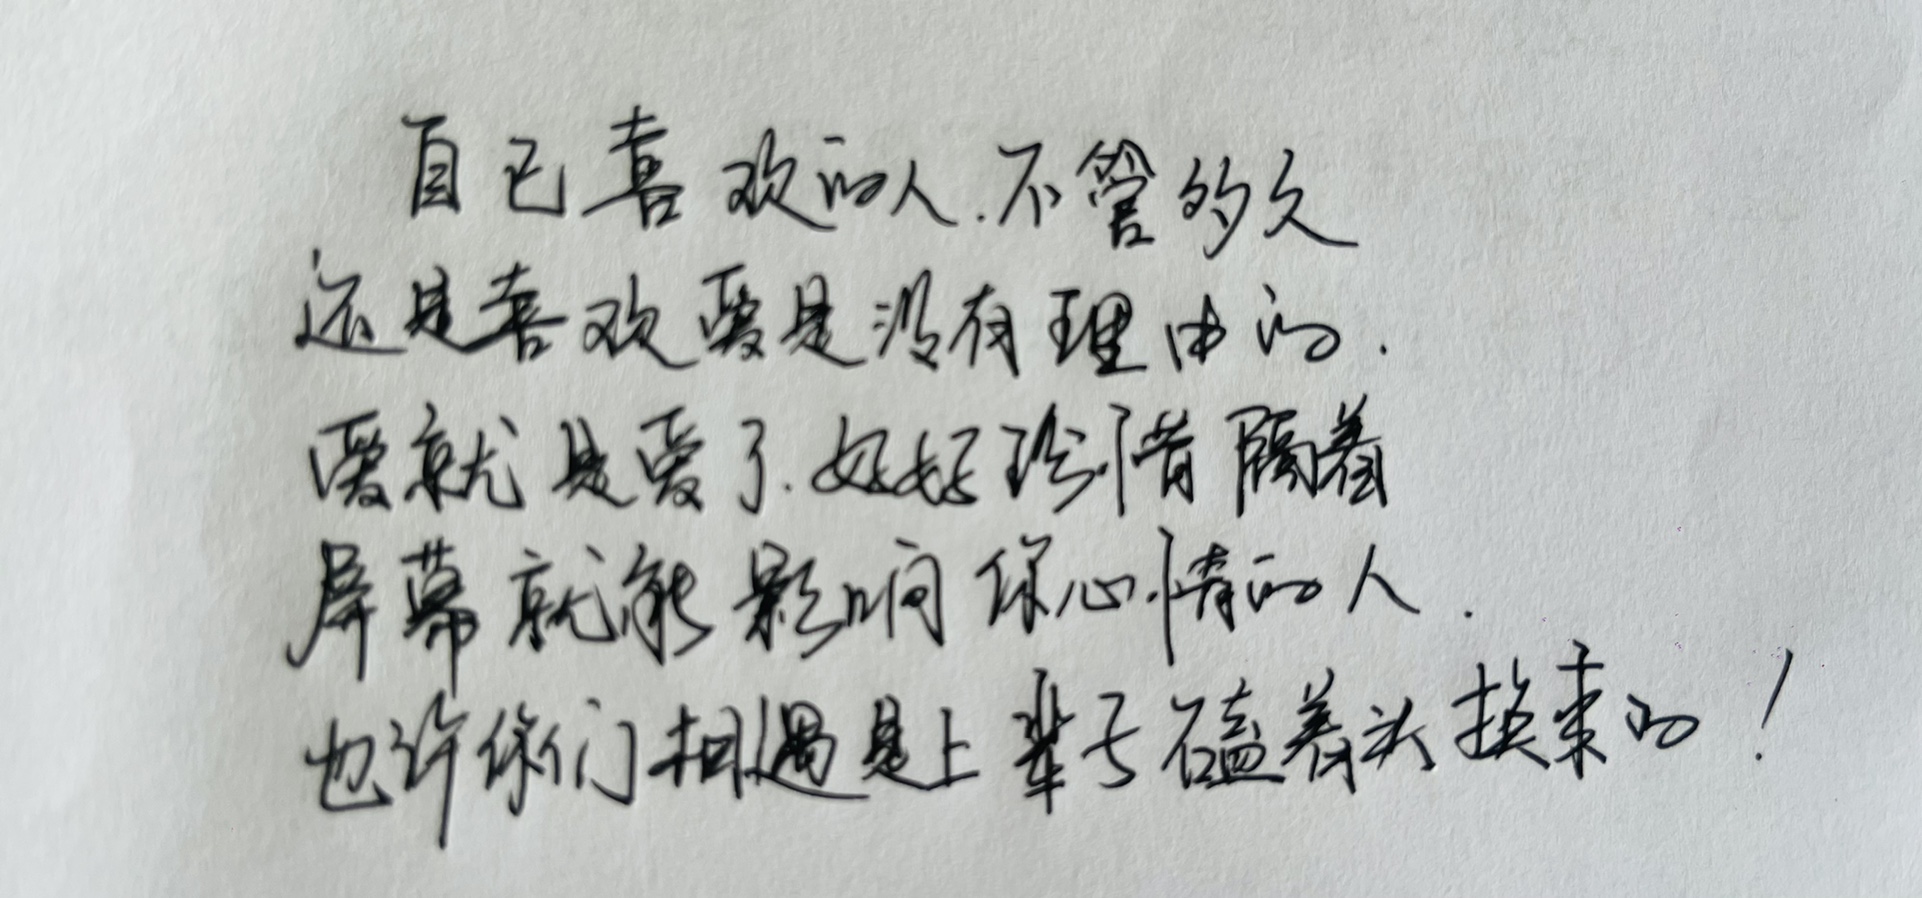 自己喜欢的人.不管多久
还是喜欢爱是没有理由的.
爱就是爱了.好好珍惜隔着
屏幕就能影响你心情的人.
也许你们相遇是上辈子磕着头换来的!